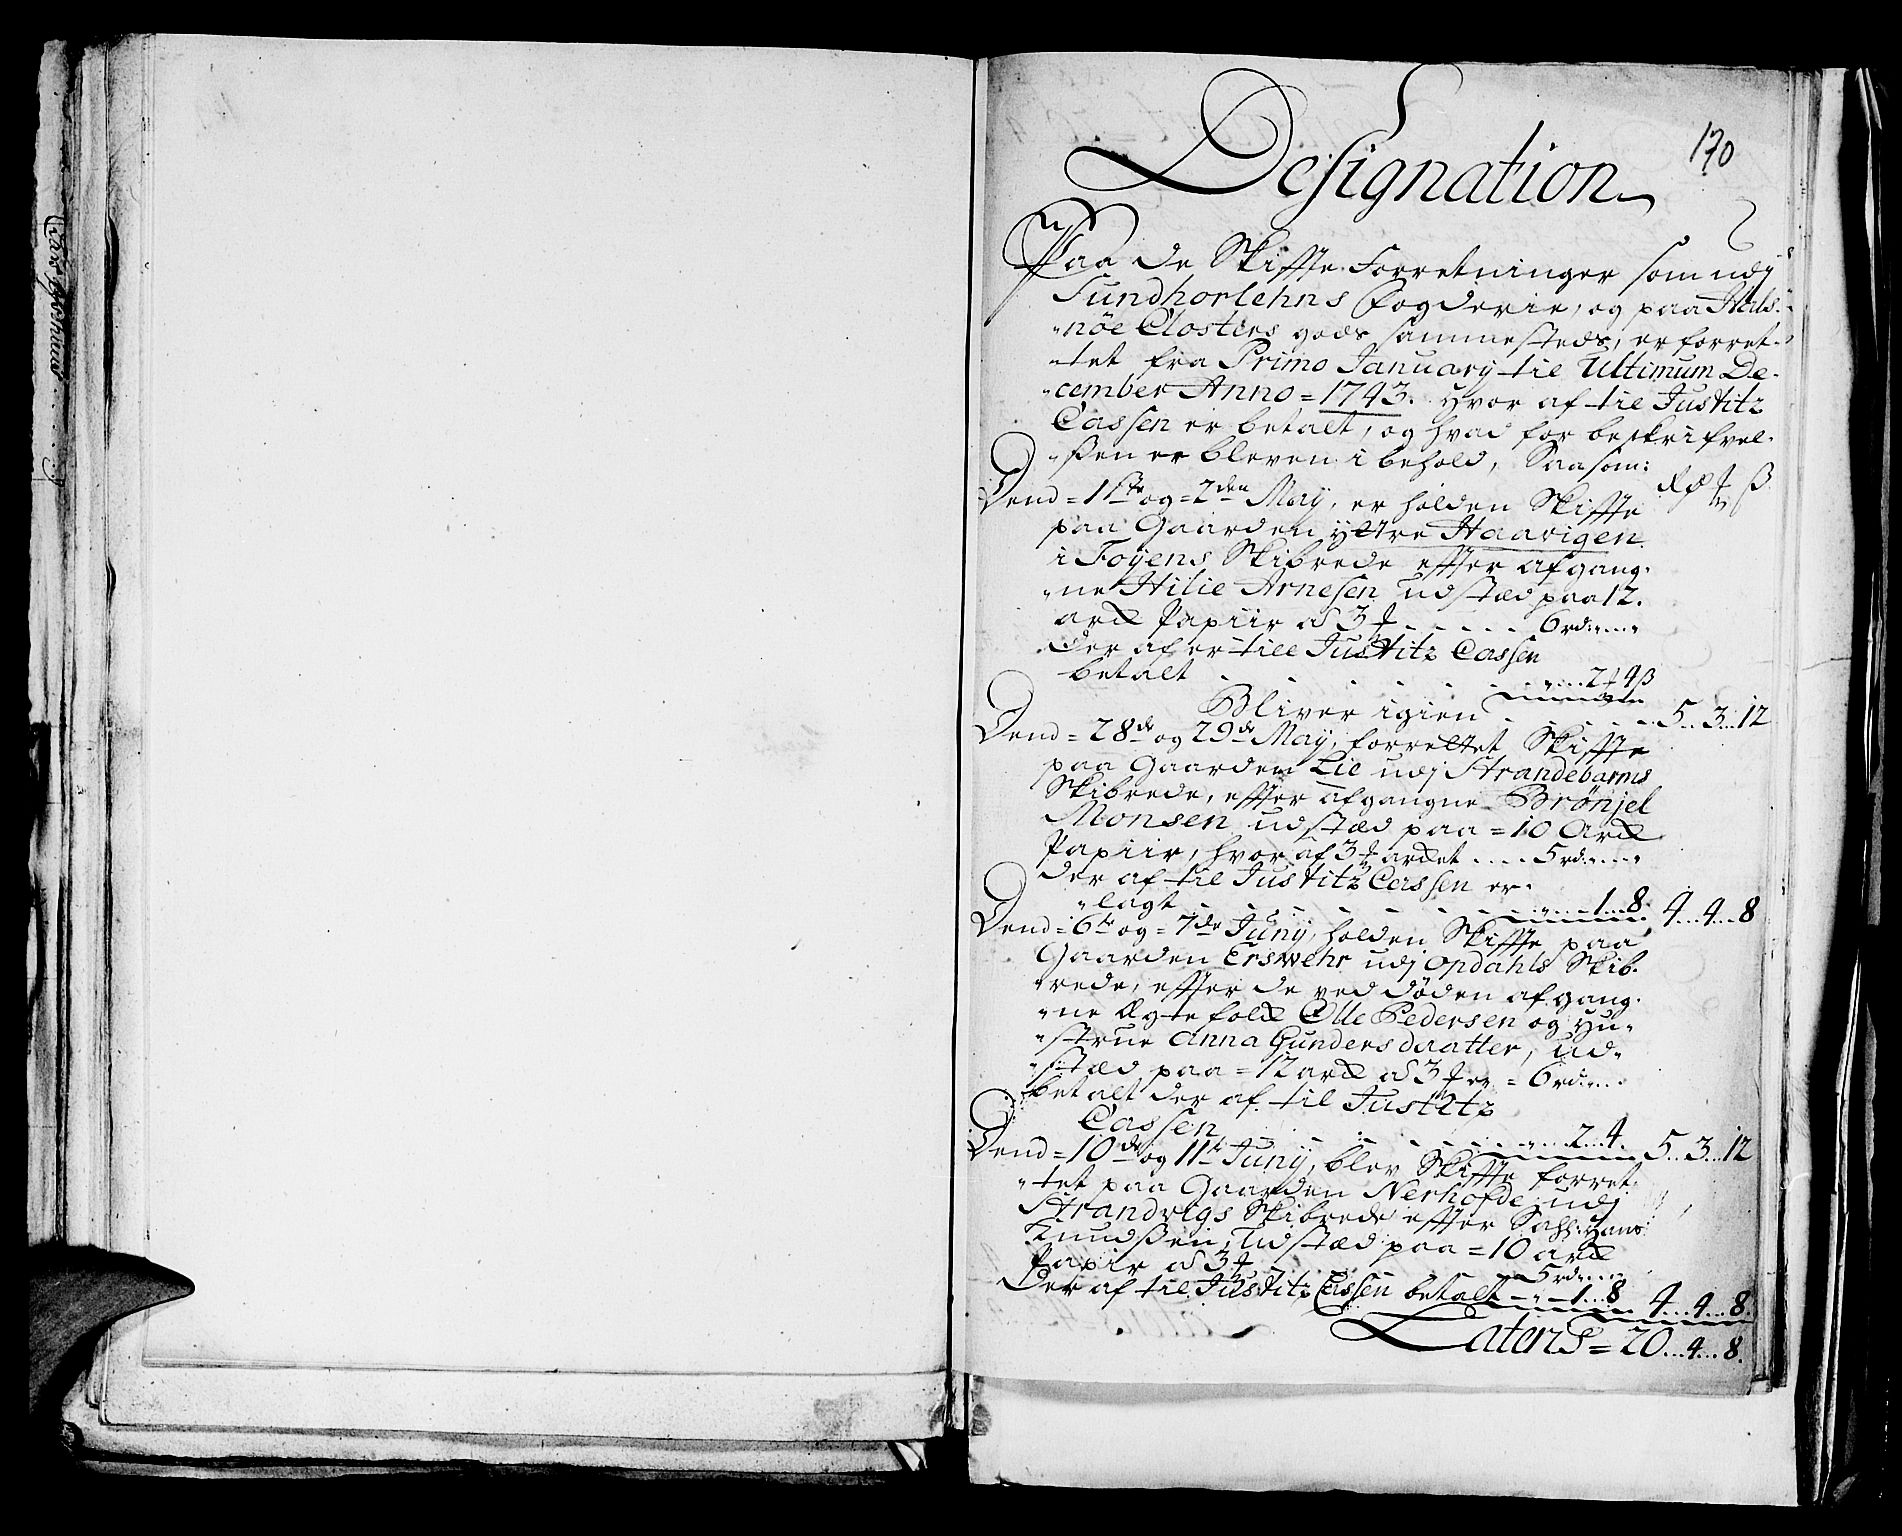 170
Designation
Paa de Skiffte Forretninger som udj
Sundhorlehns fogderie, og paa Hals-
"nöe Closters gods sammesteds, er forret-
"tet fra Primo January til Ultimum De-
"cember Anno = 1743. hvor af til Justitz
Cassen er betalt, og hvad for beskrifvel-
"ßen er bleven i behold, Saasom:
Rd ß
Dend = 1ste og = 2den Maÿ, er holden Skiffte
paa Gaarden ÿttre Haavigen
i Foÿens Skibrede effter afgang-
"ne Hilie Arnesen udstæd paa 12.
ark Papiir a 3 . . . . . . 6 rd: " . . . "
Der af er till Justitz Cassen
betalt . . . . . . . " . . . 2 4 ß
Bliver igien . . . . . . 5 . . 3 . . 12
Dend = 28de og 29de Maÿ, forrettet Skiffte
paa Gaarden Lie udj Strandebarms
Skibrede, effter afgangne Brönjel
Monsen udstæd paa = 10 Ark
Papiir, hvor af 3 arket . . . . 5 rd: " . . . "
der af til Justitz Cassen er-
"lagt . . . . . . . " . . . 1 . . 8. 4 . . 4 . . 8
Dend = 6te og = 7de Junÿ, holden Skiffte paa
Gaarden Erswehr udj Opdahls Skib-
"rede, effter de ved döden afgang-
"ne Ægtefolk Olle Pedersen og Hu-
"strue Anna Gundersdaatter, ud-
"stæd paa = 12 ark a 3 er = 6 rd: " . . .
betalt der af til Justitz
Cassen . . . . . . . " . . . 2 . . 4. 5 . . 3 . . 12
Dend = 10de og 11te Junÿ, blev Skiffte forret-
"tet paa Gaarden Nerhofde udj
Strandvigs Skibrede effter Sahl: Hans
Knudßen, Udstæd paa = 10 ark
Papir a 3 . . . . . . 5 rd: " . . .
Der af til Justitz Cassen betalt - " - 1 . . 8 4 . . 4 . . 8.
Laters = 20 . . . 4 . . . 8.